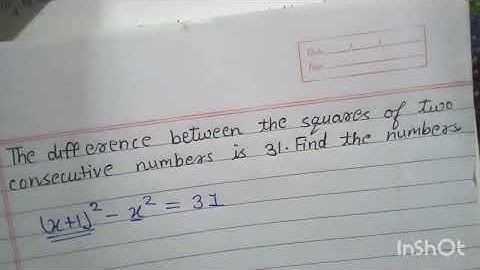 The difference between the squares of two
consecutive numbers is 31. Find the numbers
(x+1)² - x² = 31
InShOt